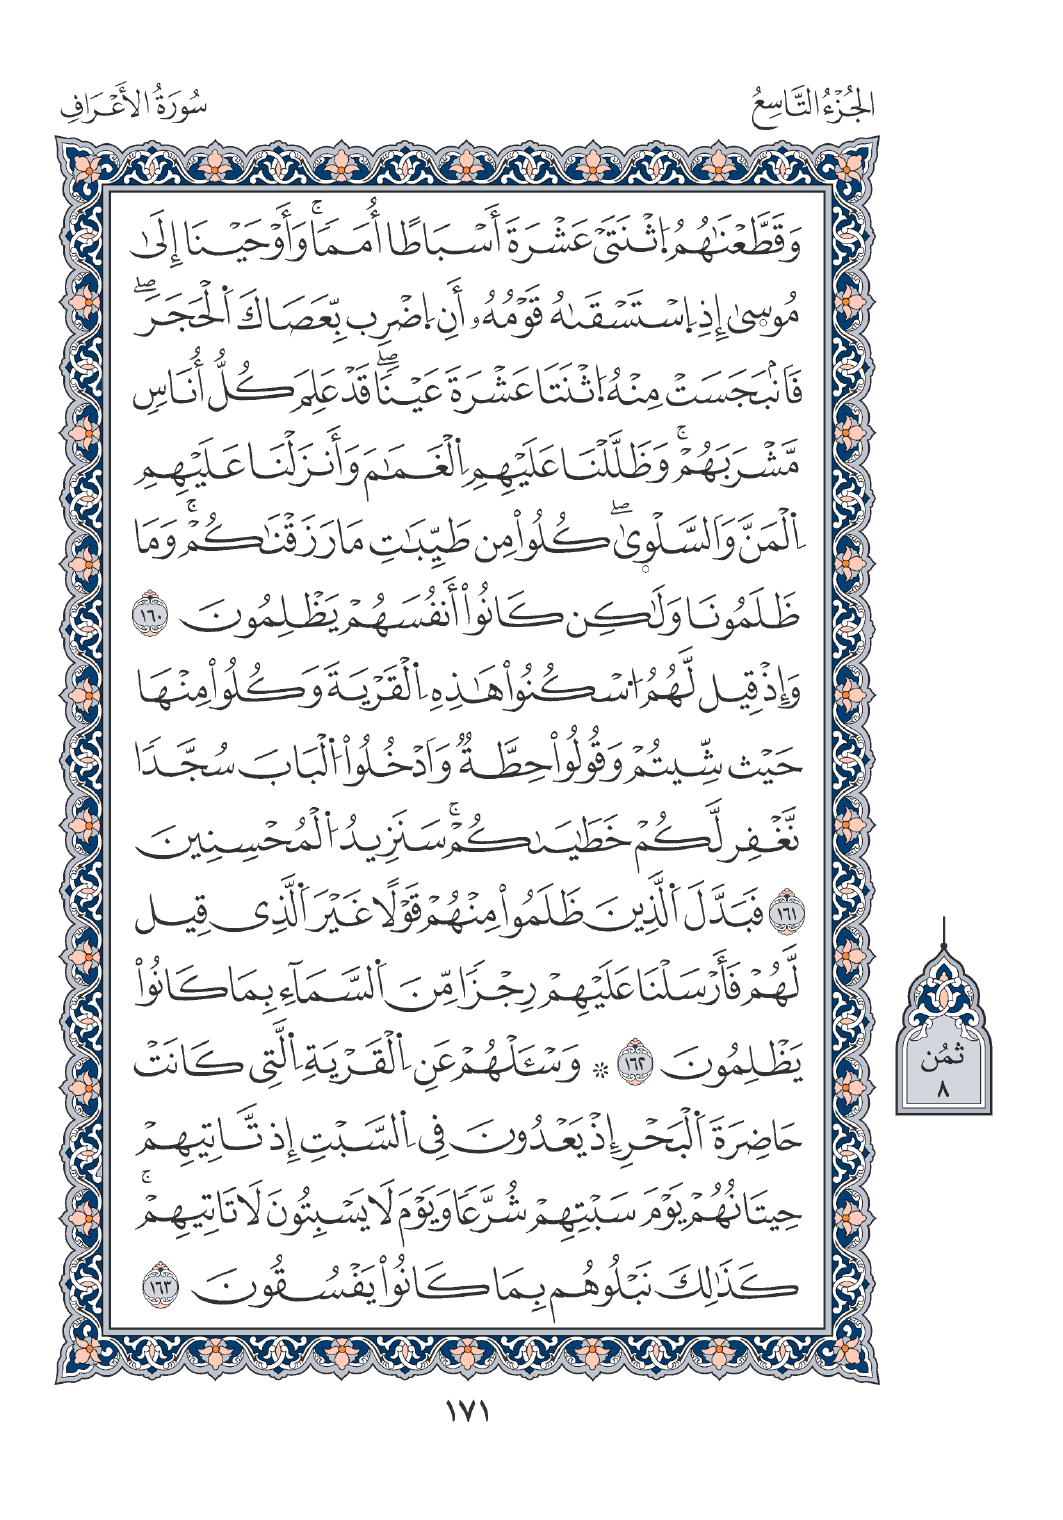 الجُزْءُ التَّاسِعُ
سُورَةُ الأَعْرَافِ
وَقَطَّعْنَٰهُمُ اُ۪ثْنَتَيْ عَشْرَةَ أَسْبَاطًا اُمَمَٗاۚ وَأَوْحَيْنَا إِلَىٰ
مُوس۪ىٰ إِذِ اِ۪سْتَسْقَىٰهُ قَوْمُهُۥ أَنِ اِ۪ضْرِب بِّعَصَاكَ اَ۬لْحَجَرَۖ
فَانۢبَجَسَتْ مِنْهُ اُ۪ثْنَتَا عَشْرَةَ عَيْنٗاۖ قَدْ عَلِمَ كُلُّ أُنَاسٖ
مَّشْرَبَهُمْۚ وَظَلَّلْنَا عَلَيْهِمِ اِ۬لْغَمَٰمَ وَأَنزَلْنَا عَلَيْهِمِ
اِ۬لْمَنَّ وَالسَّلْو۪ىٰۖ كُلُوا۟ مِن طَيِّبَٰتِ مَا رَزَقْنَٰكُمْۚ وَمَا
ظَلَمُونَا وَلَٰكِن كَانُوا۟ أَنفُسَهُمْ يَظْلِمُونَ ١٦٠
وَإِذْ قِيل لَّهُمُ اُ۟سْكُنُوا۟ هَٰذِهِ اِ۬لْقَرْيَةَ وَكُلُوا۟ مِنْهَا
حَيْث شِّيتُمْ وَقُولُوا۟ حِطَّةٞ وَادْخُلُوا۟ اُ۬لْبَابَ سُجَّدٗا
نَّغْفِر لَّكُمْ خَطَٰيَٰكُمْۚ سَنَزِيدُ اُ۬لْمُحْسِنِينَ
١٦١ فَبَدَّلَ اَ۬لَّذِينَ ظَلَمُوا۟ مِنْهُمْ قَوْلًا غَيْرَ اَ۬لَّذِي قِيل
لَّهُمْ فَأَرْسَلْنَا عَلَيْهِمْ رِجْزٗا مِّنَ اَ۬لسَّمَآءِ بِمَا كَانُوا۟
يَظْلِمُونَ ١٦٢ ۞ وَسْـَٔلْهُمْ عَنِ اِ۬لْقَرْيَةِ اِ۬لَّتِي كَانَتْ
حَاضِرَةَ اَ۬لْبَحْرِ إِذْ يَعْدُونَ فِي اِ۬لسَّبْتِ إِذ تَّاتِيهِمْ
حِيتَانُهُمْ يَوْمَ سَبْتِهِمْ شُرَّعٗا وَيَوْمَ لَا يَسْبِتُونَ لَا تَاتِيهِمْۚ
كَذَٰلِكَ نَبْلُوهُم بِمَا كَانُوا۟ يَفْسُقُونَ ١٦٣
ثمُن
٨
١٧١